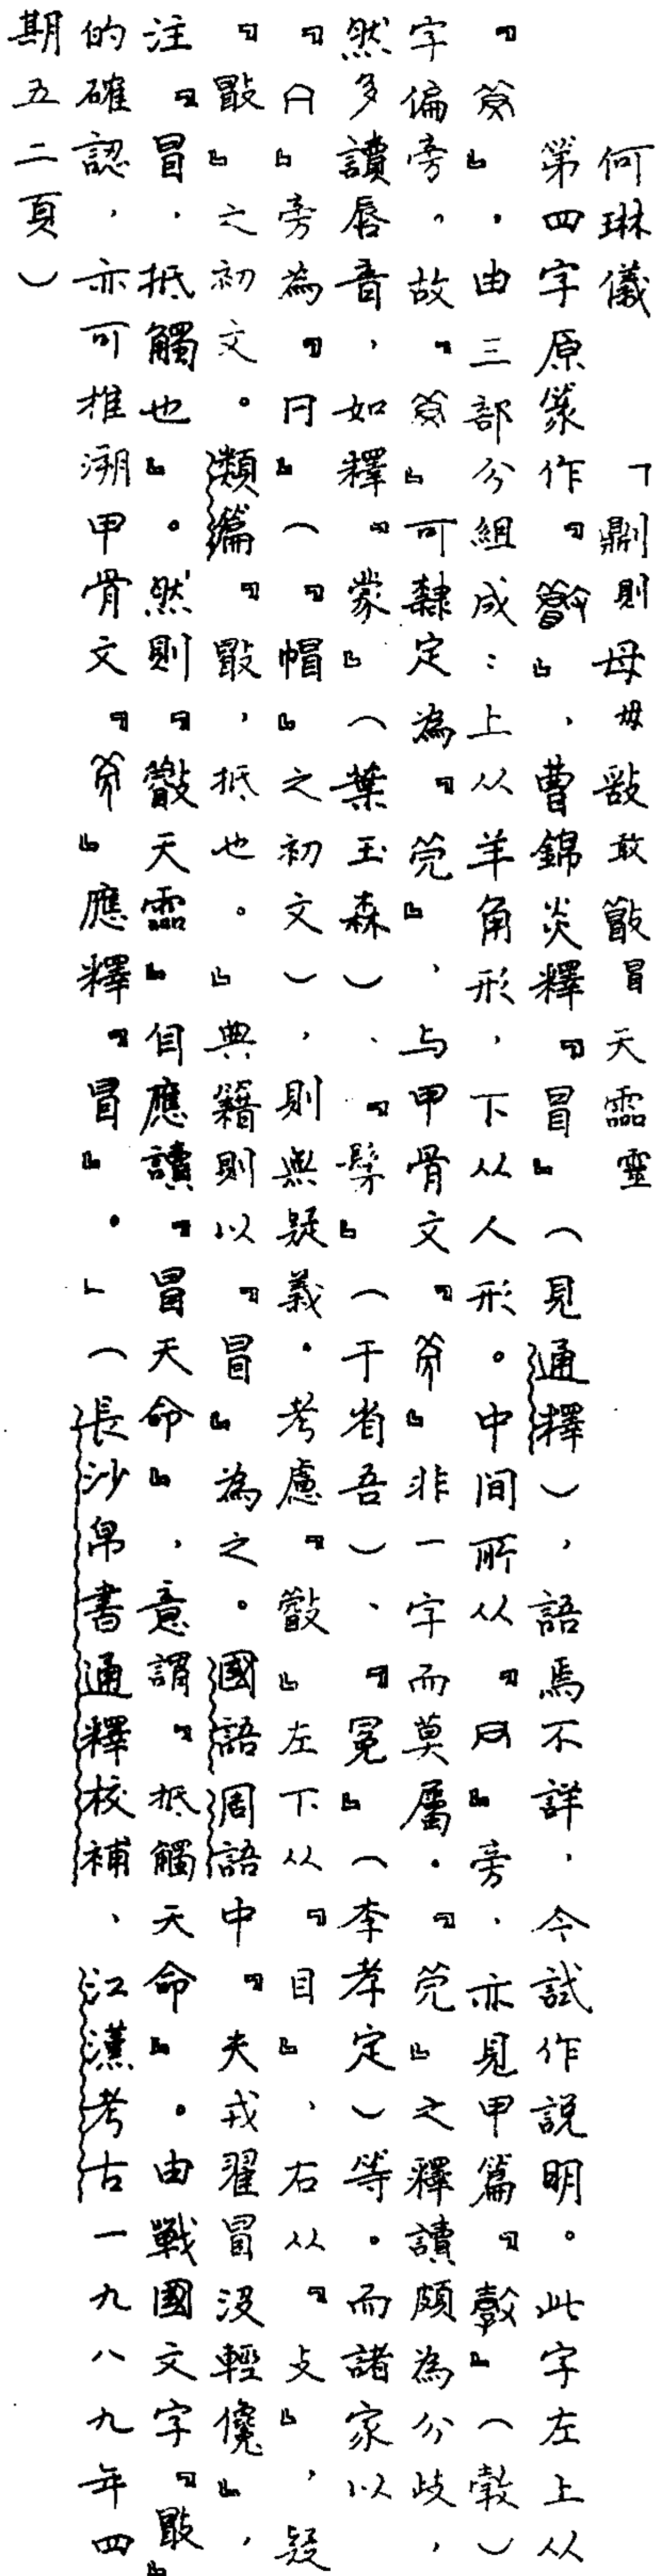 何琳儀　「鼎則母毋敢敢冒天霝靈
第四字原篆作『』，曹錦炎釋『冒』（見通釋），語焉不詳，今試作説明。此字左上从
『』，由三部分組成：上从羊角形，下从人形。中間所从『』旁，亦見甲篇『』（㝅）
字偏旁，故『』可隸定為『』，与甲骨文『』非一字而莫屬。『』之釋讀頗為分歧，
然多讀唇音，如釋『蒙』（葉玉森）、『』（于省吾）、『冕』（李孝定）等。而諸家以
『』旁為『冃』（『帽』之初文），則無疑義。考慮『』左下从『目』，右从『攴』，疑
『』之初文。類篇『，抵也。』典籍則以『冒』為之。國語周語中『夫戎翟冒没輕儳』，
注『冒，抵觸也』。然則『天霝』自應讀『冒天命』，意謂『抵觸天命』。由戰國文字『』
的確認，亦可推溯甲骨文『』應釋『冒』。」（長沙帛書通釋校補、江漢考古一九八九年四
期五二頁）